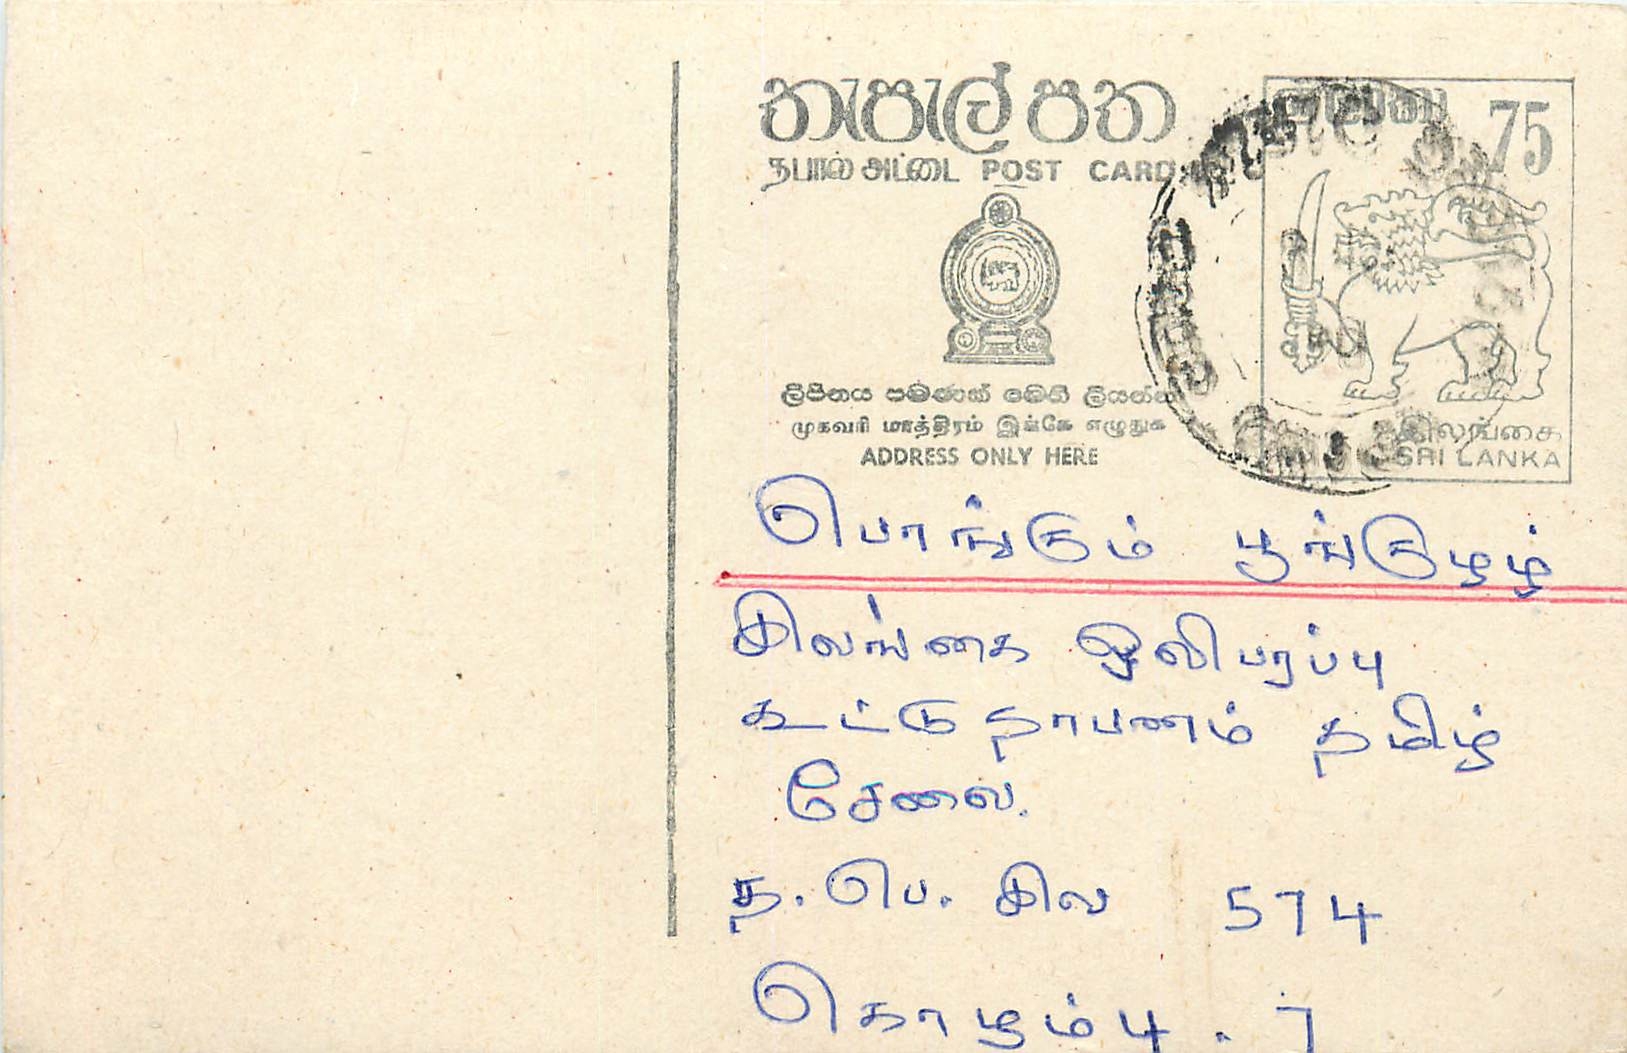 තැපැල් පත
தபால் அட்டை POST CARD
ලිපිනය පමණක් මෙහි ලියන්න
முகவரி மாத்திரம் இங்கே எழுதுக
ADDRESS ONLY HERE
ලංකා 75
இலங்கை
SRI LANKA
பொங்கும் பூங்குழழ்
இலங்கை ஒலிபரப்பு
கூட்டு தாபணம் தமிழ்
சேவை.
த. பெ. இல 574
கொழம்பு . 7